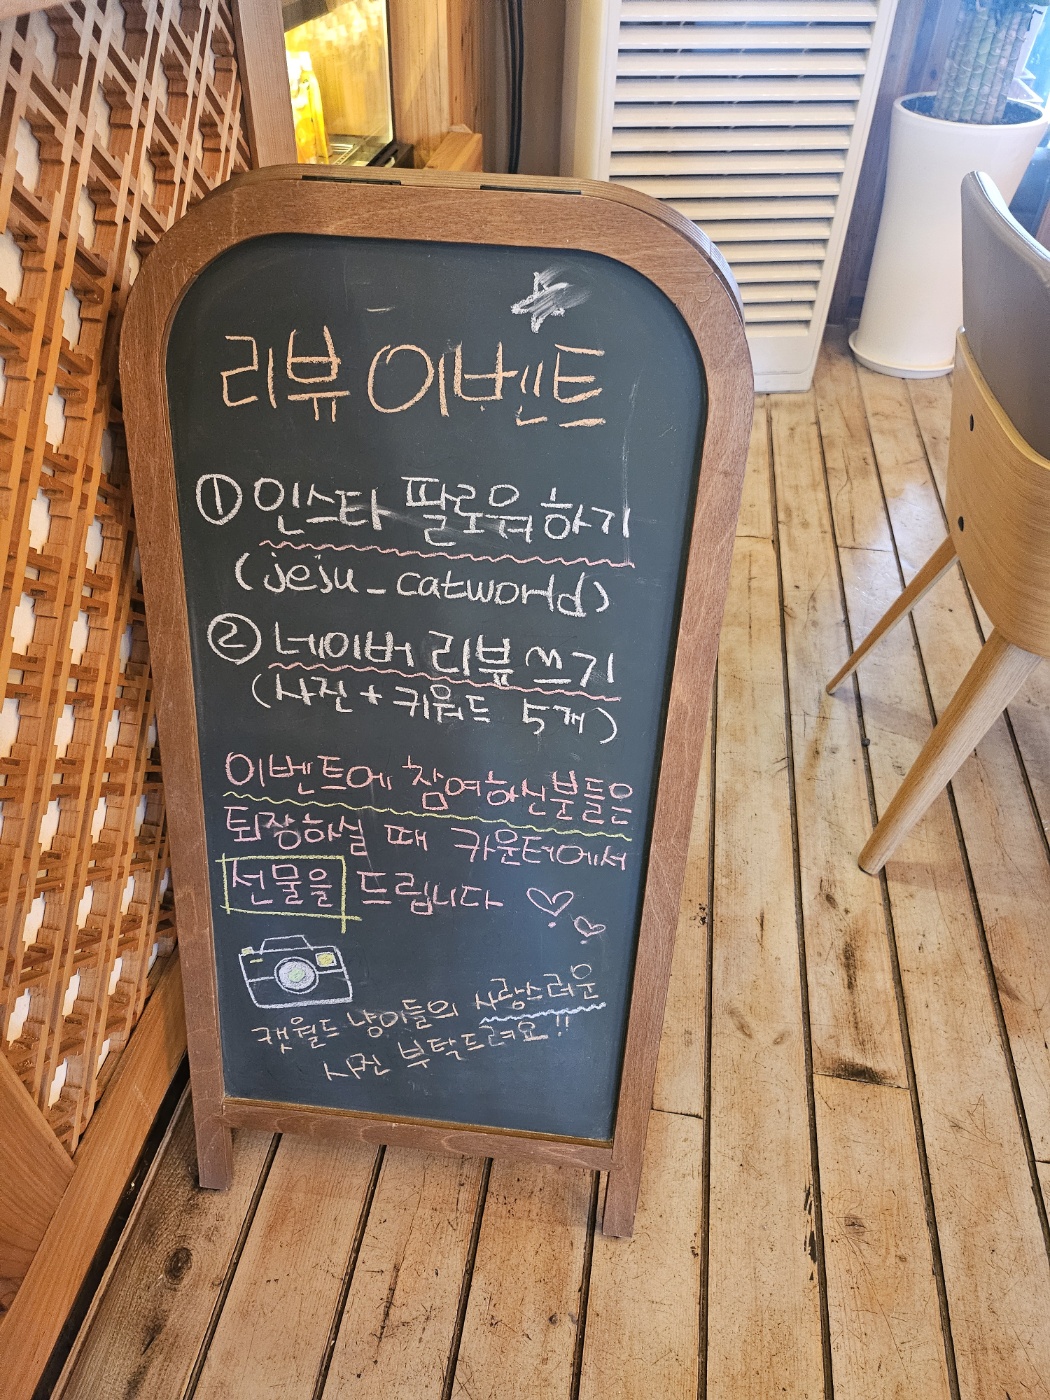 리뷰 이벤트
① 인스타 팔로워 하기
(jeju_catworld)
② 네이버 리뷰 쓰기
(사진 + 키워드 5개)
이벤트에 참여하신분들은
퇴장하실 때 카운터에서
선물을 드립니다
캣월드 냥이들의 사랑스러운
사진 부탁드려요!!